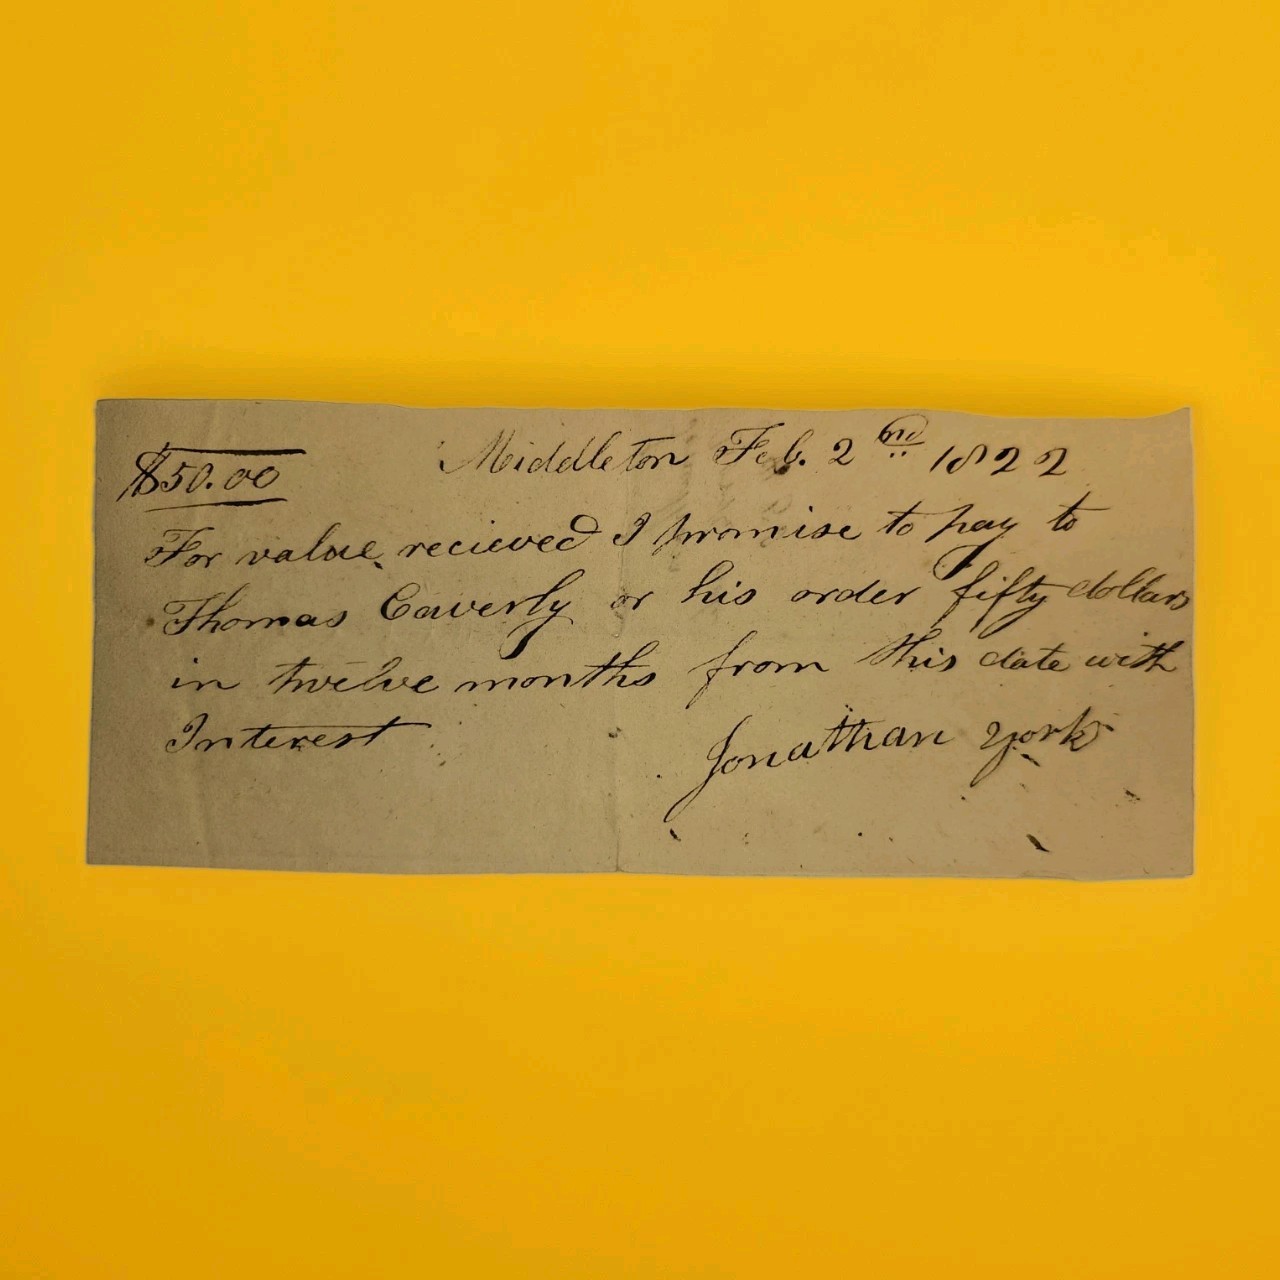 $50.00 Middleton Feb. 2nd 1822
For value recieved I promise to pay to
Thomas Caverly or his order fifty dollars
in twelve months from this date with
Interest
Jonathan York